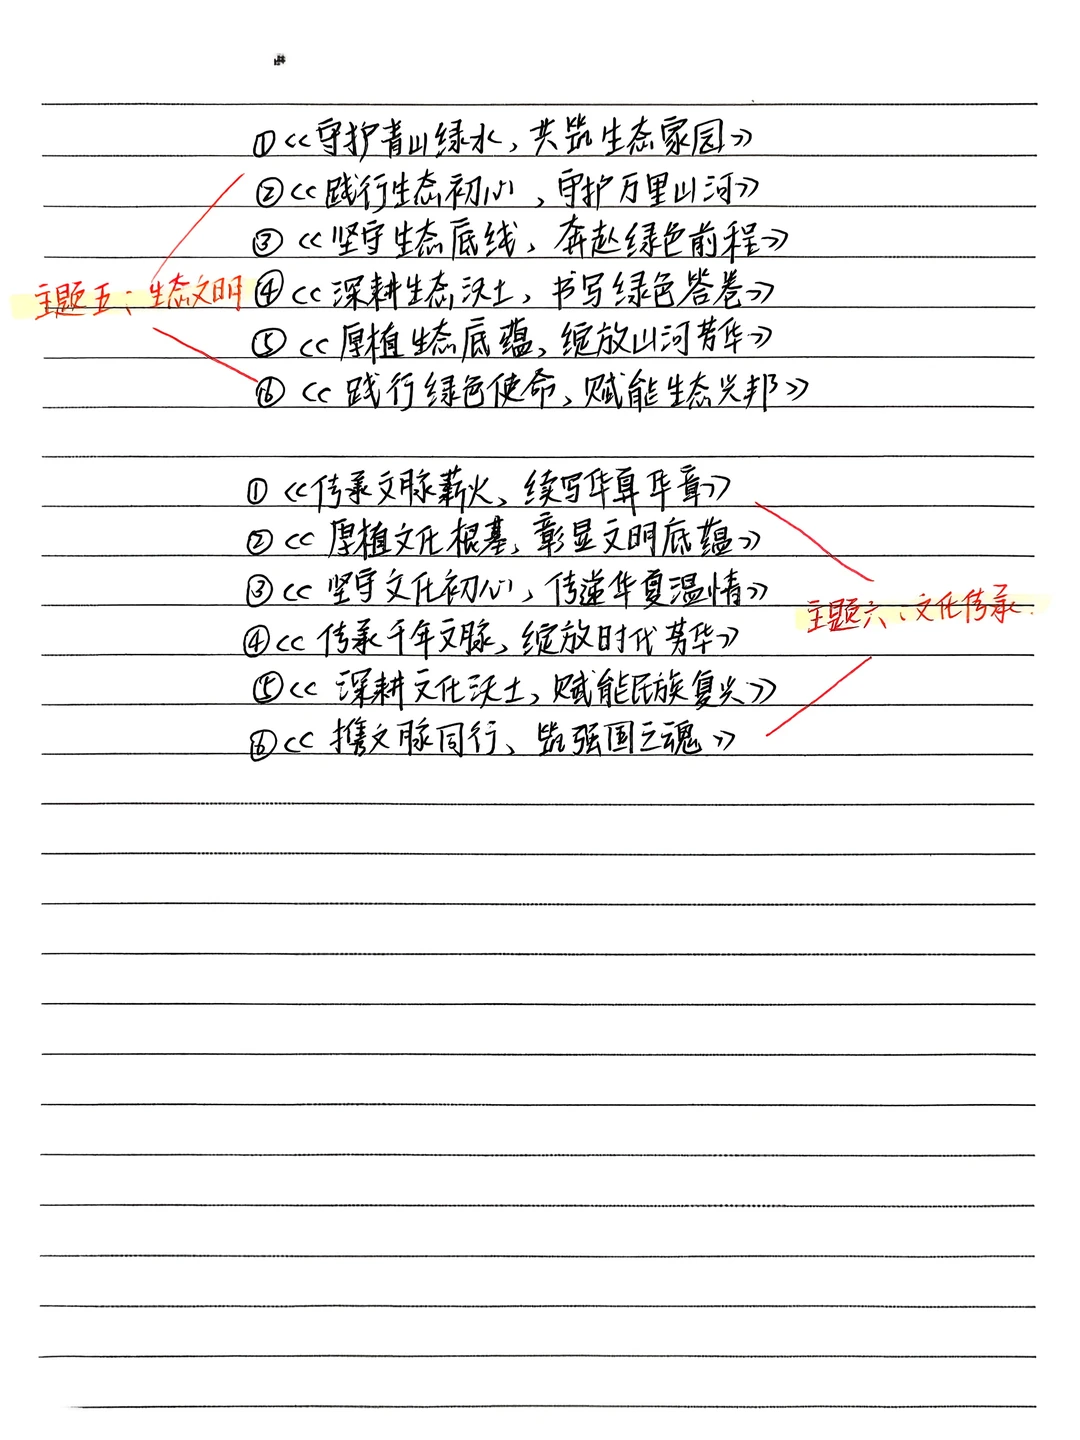 ①《守护青山绿水,共筑生态家园》
②《践行生态初心,守护万里山河》
③《坚守生态底线,奔赴绿色前程》
主题五:生态文明
④《深耕生态沃土,书写绿色答卷》
⑤《厚植生态底蕴,绽放山河芳华》
⑥《践行绿色使命,赋能生态兴邦》
①《传承文脉薪火,续写华夏华章》
②《厚植文化根基,彰显文明底蕴》
③《坚守文化初心,传递华夏温情》
主题六:文化传承
④《传承千年文脉,绽放时代芳华》
⑤《深耕文化沃土,赋能民族复兴》
⑥《携文脉同行,筑强国之魂》